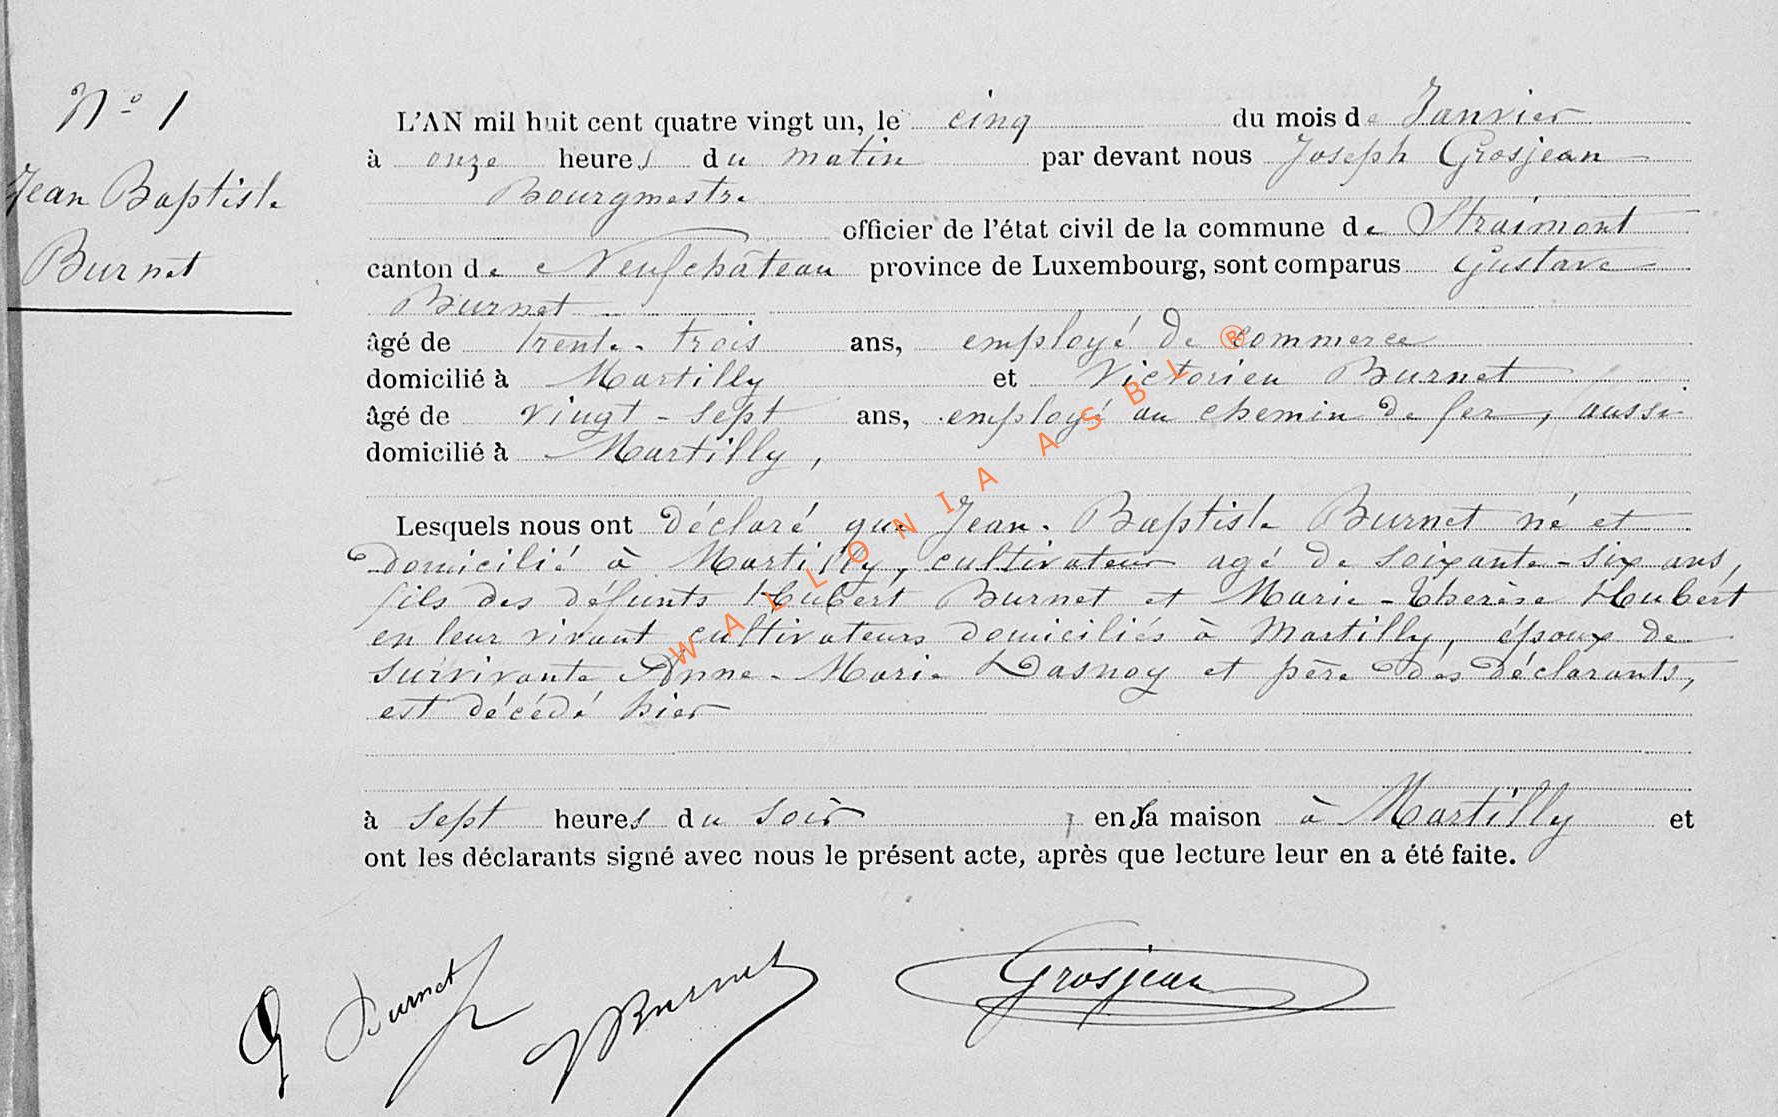 N° 1
Jean Baptiste
Burnet
L'AN mil huit cent quatre vingt un, le cinq du mois de Janvier
à onze heures du matin par devant nous Joseph Grosjean
Bourgmestre
officier de l'état civil de la commune de Straimont
canton de Neufchâteau province de Luxembourg, sont comparus Gustave
Burnet
âgé de trente-trois ans, employé de commerce
domicilié à Martilly et Victorien Burnet
âgé de vingt-sept ans, employé au chemin de fer, aussi
domicilié à Martilly,
Lesquels nous ont déclaré que Jean-Baptiste Burnet né et
domicilié à Martilly, cultivateur agé de soixante-six ans,
fils des défunts Hubert Burnet et Marie-Thérèse Hubert
en leur vivant cultivateurs domiciliés à Martilly, époux de
survivante Anne-Marie Dasnoy et père des déclarants,
est décédé hier
à sept heures du soir en sa maison à Martilly et
ont les déclarants signé avec nous le présent acte, après que lecture leur en a été faite.
G Burnet
V Burnet
Grosjean
WALLONIA ASBL ®